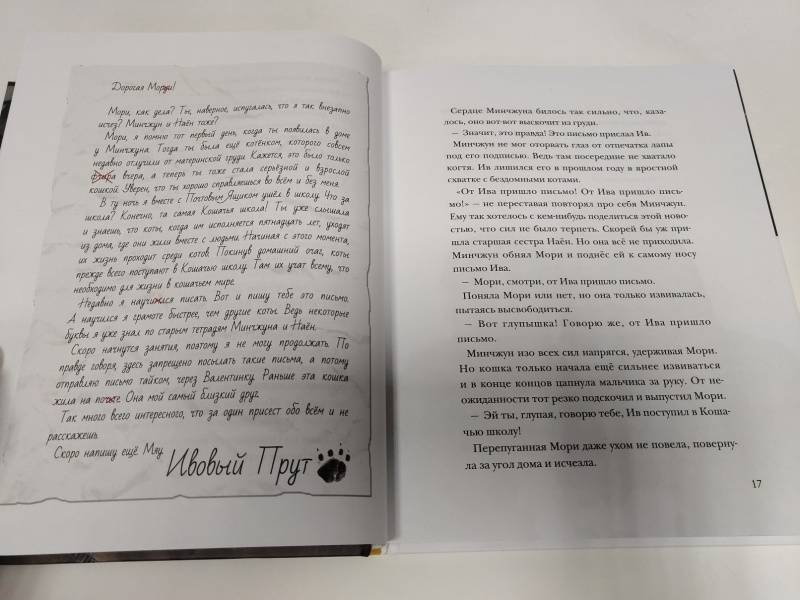 Дорогая Мори!
Мори, как дела? Ты, наверное, испугалась, что я так внезапно
исчез? Минчжун и Наён тоже?
Мори, я помню тот первый день, когда ты появилась в доме
у Минчжуна. Тогда ты была ещё котёнком, которого совсем
недавно отлучили от материнской груди. Кажется, это было только
вчера, а теперь ты тоже стала серьёзной и взрослой
кошкой. Уверен, что ты хорошо справляешься во всём и без меня.
В ту ночь я вместе с Почтовым Ящиком ушёл в школу. Что за
школа? Конечно, та самая Кошачья школа! Ты уже слышала
и знаешь, что коты, когда им исполняется пятнадцать лет, уходят
из дома, где они жили вместе с людьми. Начиная с этого момента,
их жизнь проходит среди котов. Покинув домашний очаг, коты
прежде всего поступают в Кошачью школу. Там их учат всему, что
необходимо для жизни в кошачьем мире.
Недавно я научился писать. Вот и пишу тебе это письмо.
А научился я грамоте быстрее, чем другие коты. Ведь некоторые
буквы я уже знал по старым тетрадям Минчжуна и Наён.
Скоро начнутся занятия, поэтому я не могу продолжать. По
правде говоря, здесь запрещено посылать такие письма, а потому
отправляю письмо тайком, через Валентинку. Раньше эта кошка
жила на почте. Она мой самый близкий друг.
Так много всего интересного, что за один присест обо всём и не
расскажешь.
Скоро напишу ещё. Мяу.
Ивовый Прут
Сердце Минчжуна билось так сильно, что, каза-
лось, оно вот-вот выскочит из груди.
— Значит, это правда! Это письмо прислал Ив.
Минчжун не мог оторвать глаз от отпечатка лапы
под его подписью. Ведь там посередине не хватало
когтя. Ив лишился его в прошлом году в яростной
схватке с бездомными котами.
«От Ива пришло письмо! От Ива пришло пись-
мо!» — не переставая повторял про себя Минчжун.
Ему так хотелось с кем-нибудь поделиться этой ново-
стью, что сил не было терпеть. Скорей бы уж при-
шла старшая сестра Наён! Но она всё не приходила.
Минчжун обнял Мори и поднёс ей к самому носу
письмо Ива.
— Мори, смотри, от Ива пришло письмо.
Поняла Мори или нет, но она только извивалась,
пытаясь высвободиться.
— Вот глупышка! Говорю же, от Ива пришло
письмо.
Минчжун изо всех сил напрягся, удерживая Мори.
Но кошка только начала ещё сильнее извиваться
и в конце концов цапнула мальчика за руку. От не-
ожиданности тот резко подскочил и выпустил Мори.
— Эй ты, глупая, говорю тебе, Ив поступил в Коша-
чью школу!
Перепуганная Мори даже ухом не повела, поверну-
ла за угол дома и исчезла.
17